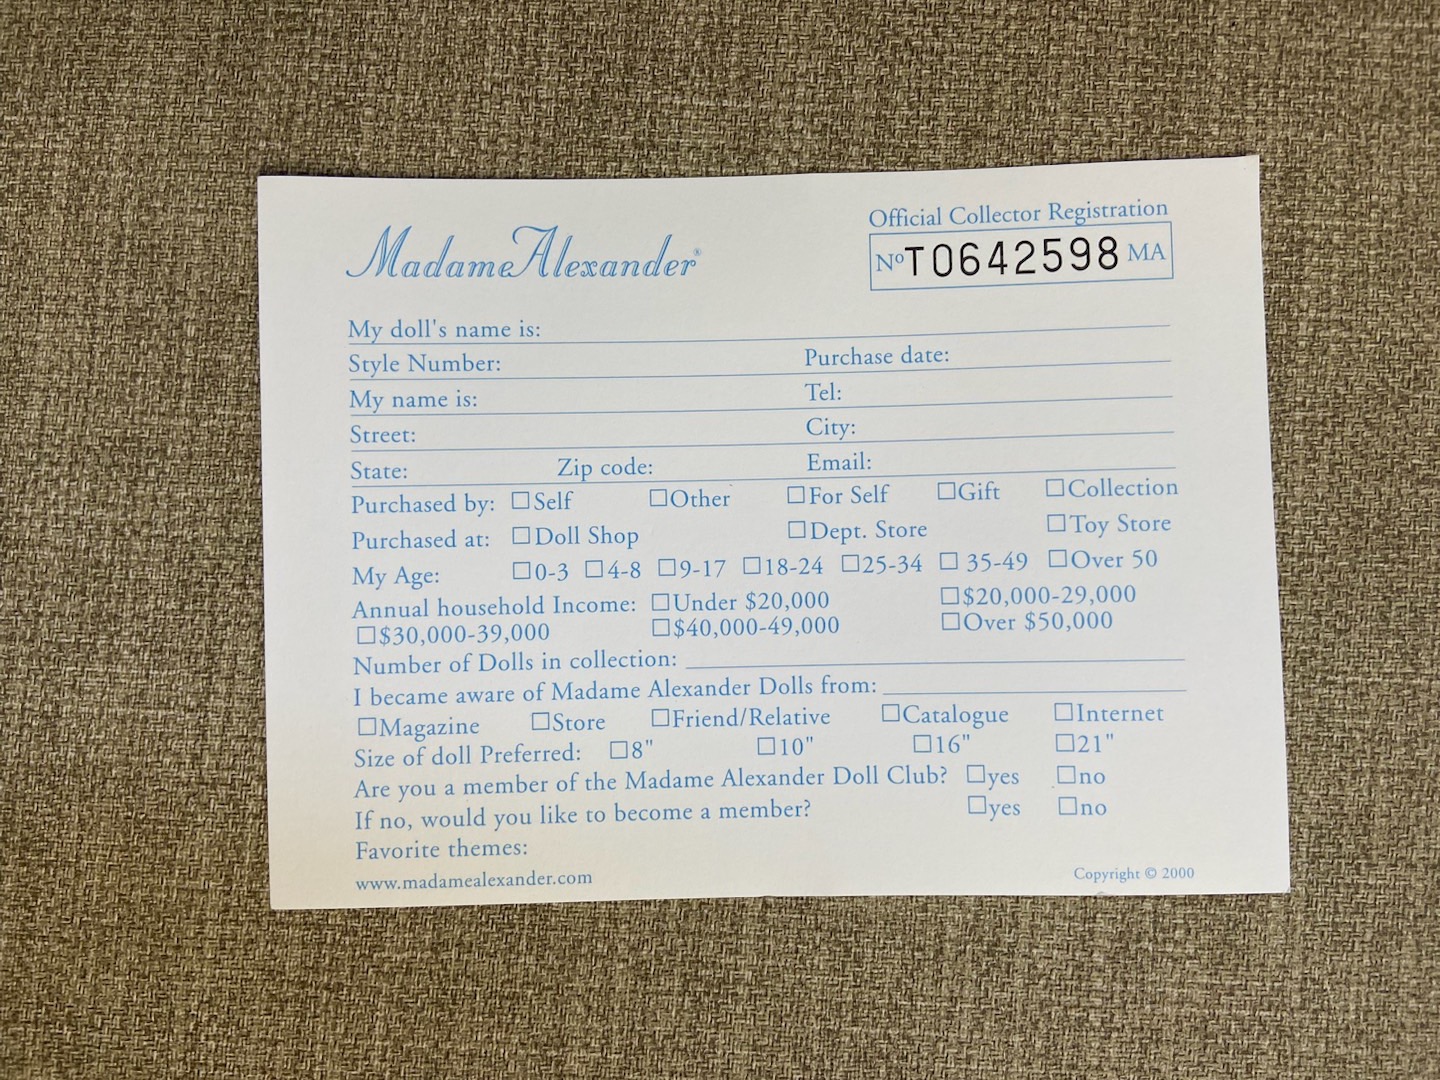 Madame Alexander®
Official Collector Registration
Nº T0642598 MA
My doll's name is:
Style Number: Purchase date:
My name is: Tel:
Street: City:
State: Zip code: Email:
Purchased by: ☐ Self ☐ Other ☐ For Self ☐ Gift ☐ Collection
Purchased at: ☐ Doll Shop ☐ Dept. Store ☐ Toy Store
My Age: ☐ 0-3 ☐ 4-8 ☐ 9-17 ☐ 18-24 ☐ 25-34 ☐ 35-49 ☐ Over 50
Annual household Income: ☐ Under $20,000 ☐ $20,000-29,000
☐ $30,000-39,000 ☐ $40,000-49,000 ☐ Over $50,000
Number of Dolls in collection:
I became aware of Madame Alexander Dolls from:
☐ Magazine ☐ Store ☐ Friend/Relative ☐ Catalogue ☐ Internet
Size of doll Preferred: ☐ 8" ☐ 10" ☐ 16" ☐ 21"
Are you a member of the Madame Alexander Doll Club? ☐ yes ☐ no
If no, would you like to become a member? ☐ yes ☐ no
Favorite themes:
www.madamealexander.com Copyright © 2000